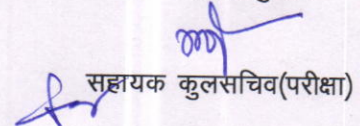 सहायक कुलसचिव(परीक्षा)